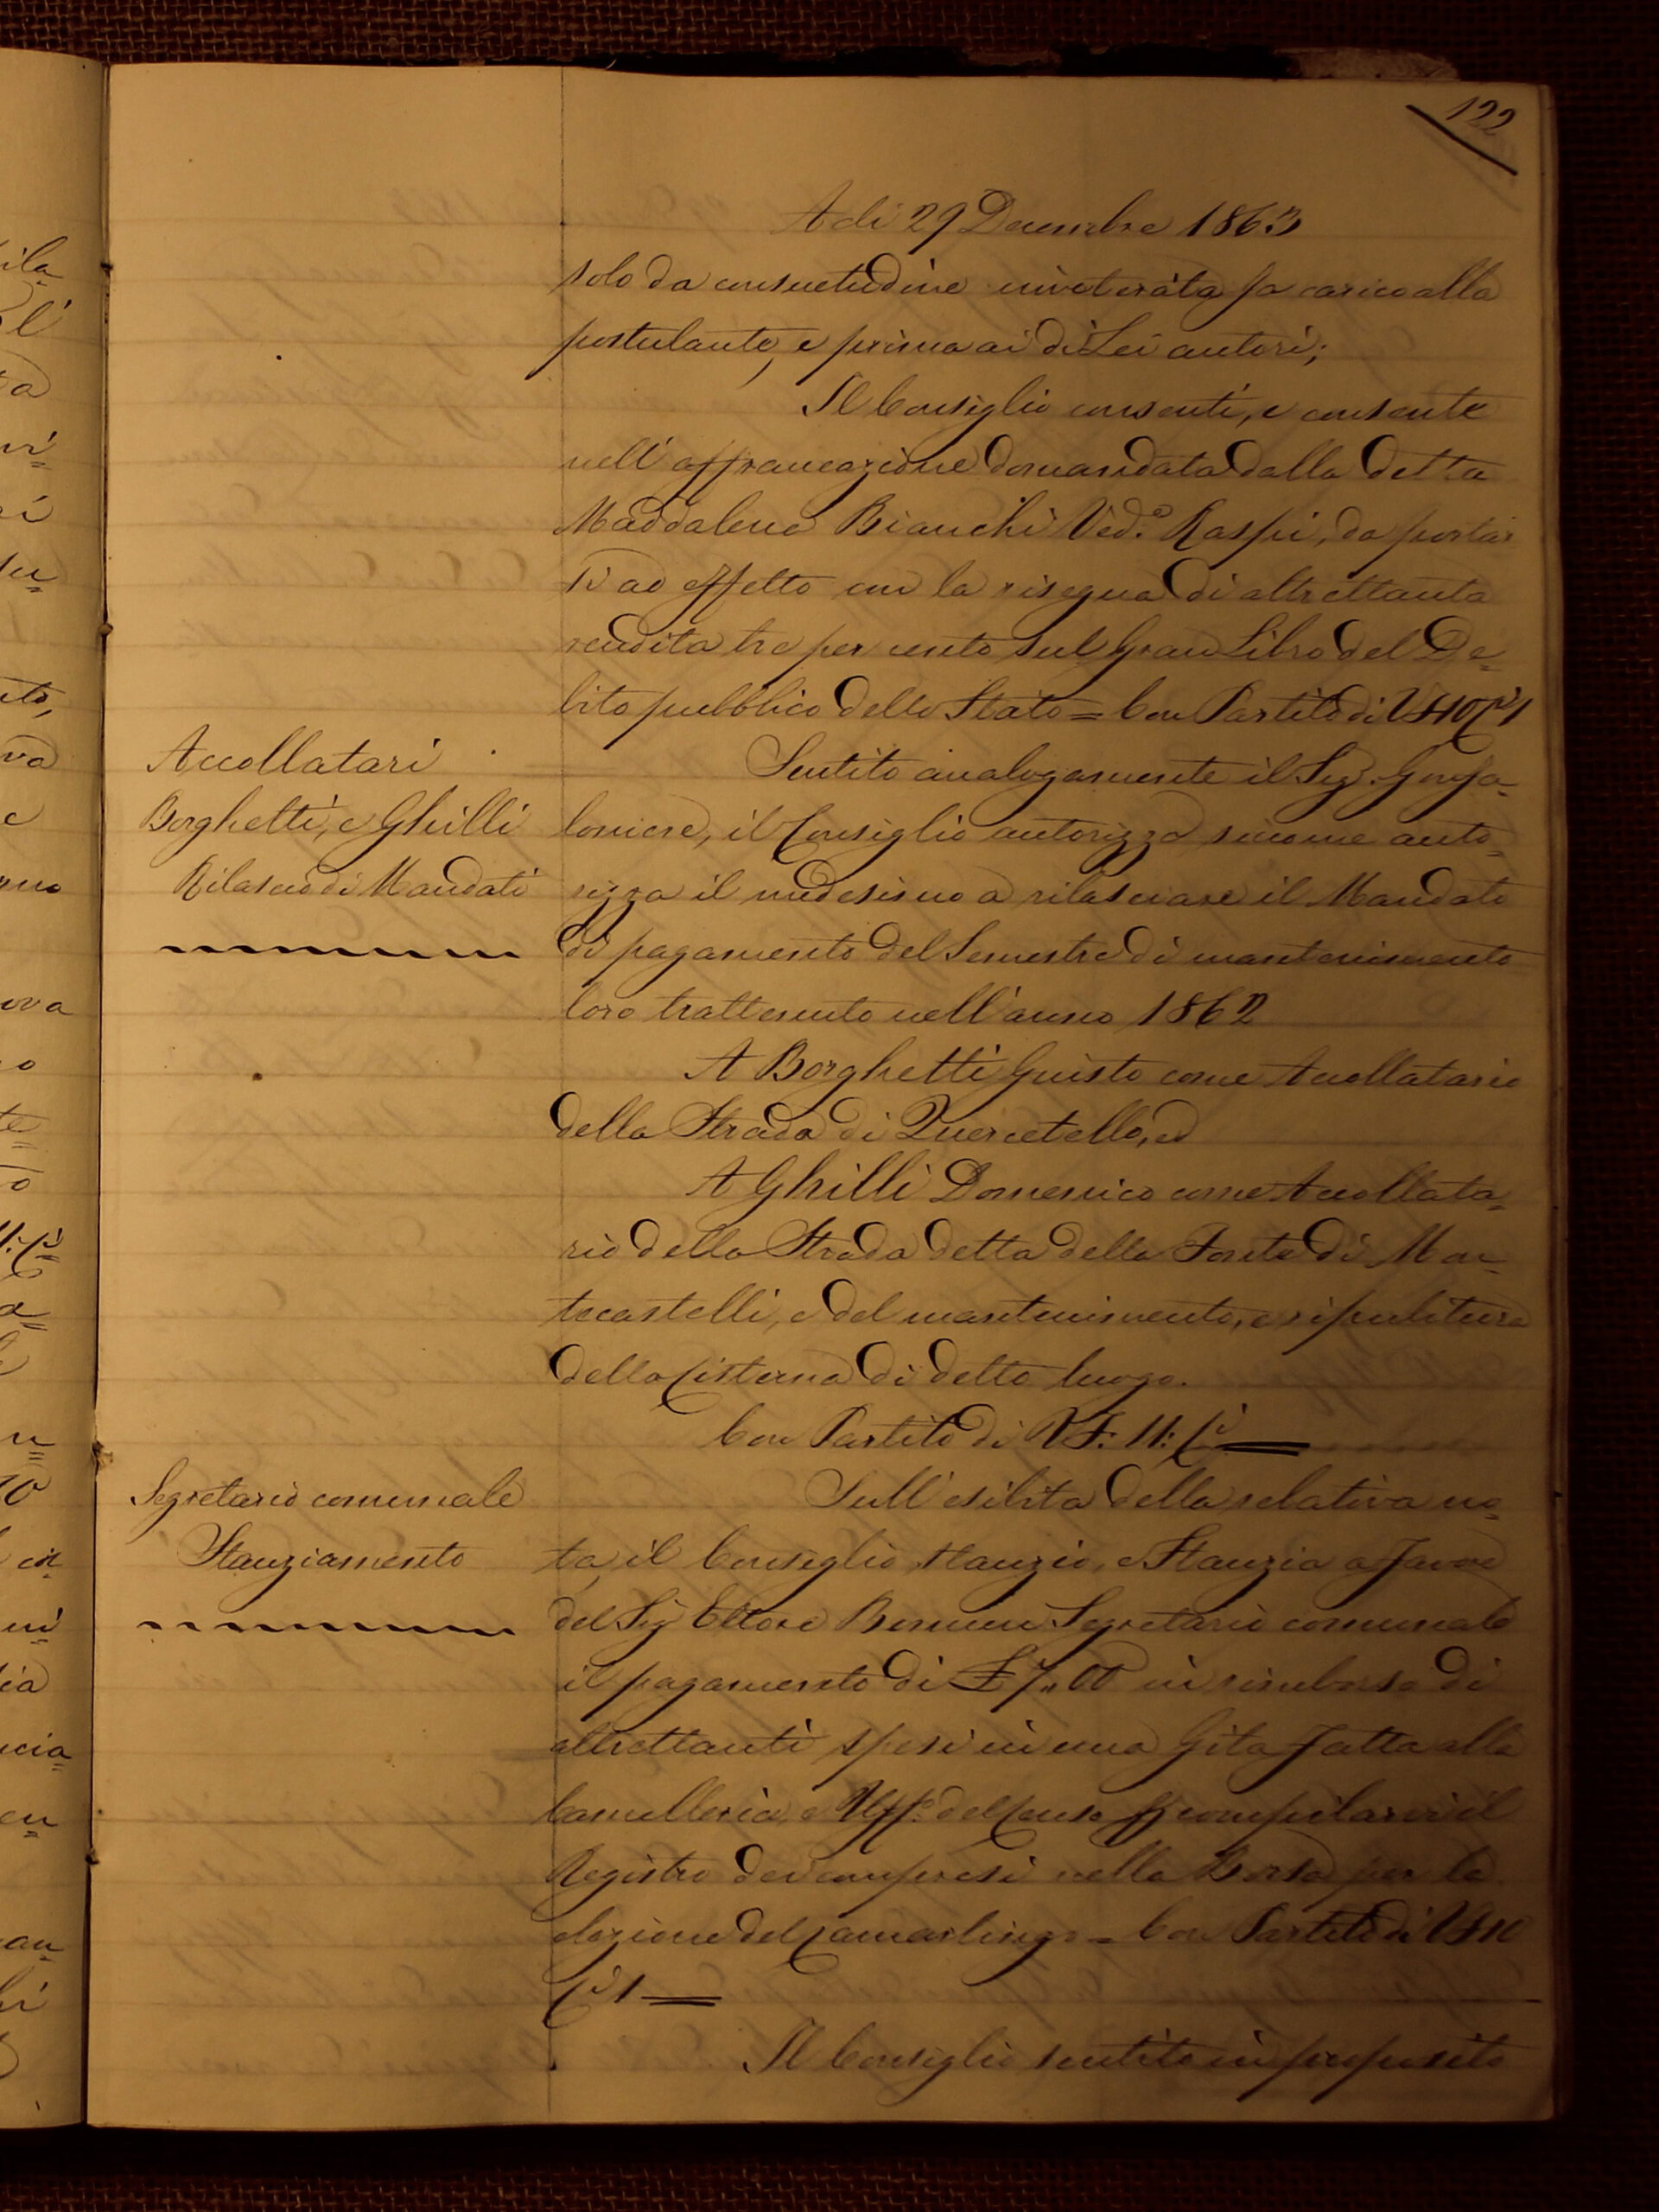 122
Adì 29 Decembre 1863
solo da consuetudine inveterata fa carico alla
postulante, e prima ai di Lei autori;
Il Consiglio consentì, e consente
nell'affrancazione domandata dalla detta
Maddalena Bianchi Ved.a Raspi, da portar
si ad effetto con la risegna di altrettanta
rendita tre per cento sul Gran Libro del De=
bito pubblico dello Stato = Con Partito di VF 10 Ci 1
Accollatari
Borghetti, e Ghilli
Rilascio di Mandati
Sentito analogamente il Sigr. Gonfa=
loniere, il Consiglio autorizzò siccome auto=
rizza il medesimo a rilasciare il Mandato
di pagamento del Semestre di mantenimento
loro trattenuto nell'anno 1862
A Borghetti Giusto come Accollatario
della Strada di Quercetello, ed
A Ghilli Domenico come Accollata=
rio della Strada detta della Fonte di Mon=
tecastelli, e del mantenimento, e ripulitura
della Cisterna di detto luogo.
Con Partito di VF: 11: Ci =
Segretario comunale
Stanziamento
Sull'esibita della relativa no=
ta, il Consiglio stanziò, e Stanzia a favore
del Sig Ettore Segretario comunale
il pagamento di £ 7,,00 in rimborso di
altrettanti spesi in una Gita fatta alla
Cancelleria, e Uff.o del Censo compilarvi il
Registro dei compresi nella Borsa per la
elezione del Camarlingo = Con Partito di VF 10
Ci 1 =
Il Consiglio sentito in proposito